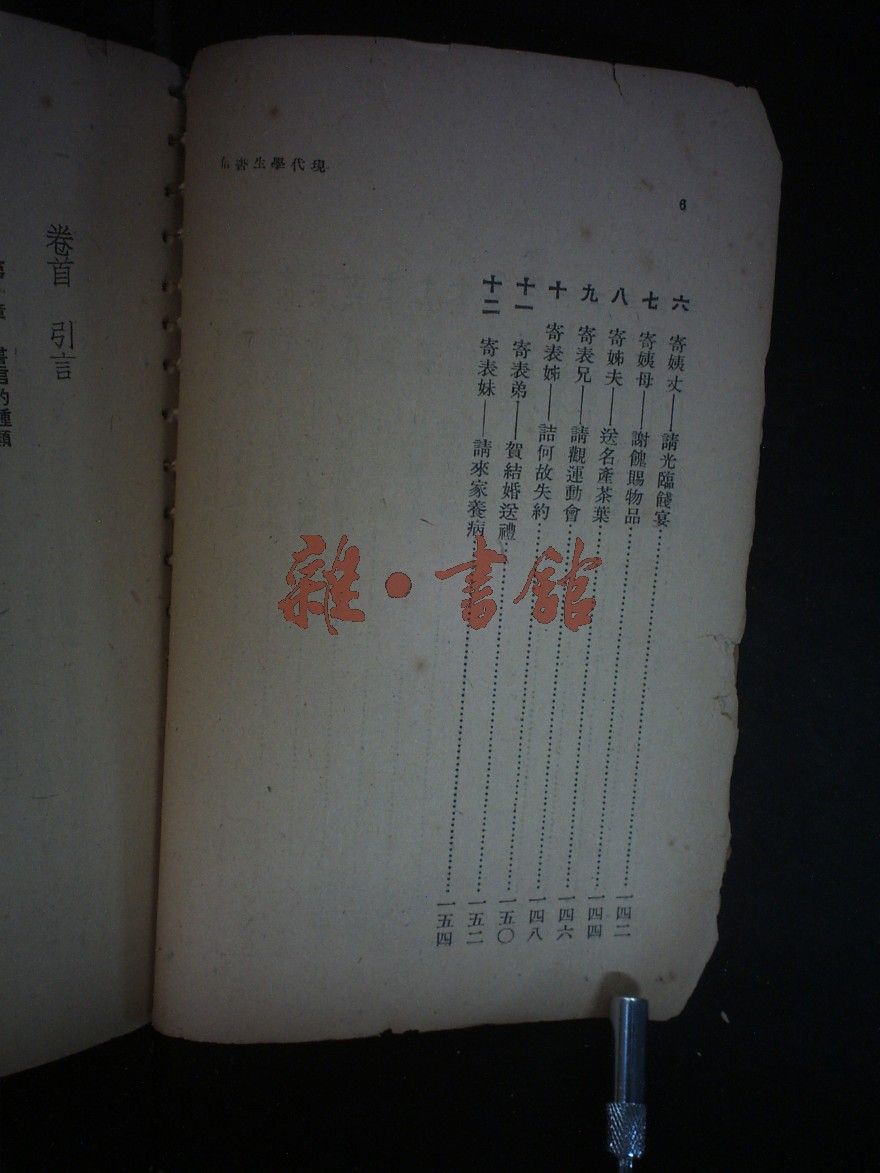 現代學生書信
6
六 寄姨丈——請光臨餞宴……一四二
七 寄姨母——謝餽賜物品……一四四
八 寄姊夫——送名產茶葉……一四六
九 寄表兄——請觀運動會……一四八
十 寄表姊——詰何故失約……一五〇
十一 寄表弟——賀結婚送禮……一五二
十二 寄表妹——請來家養病……一五四
雜·書館
卷首 引言
章 書信的種類